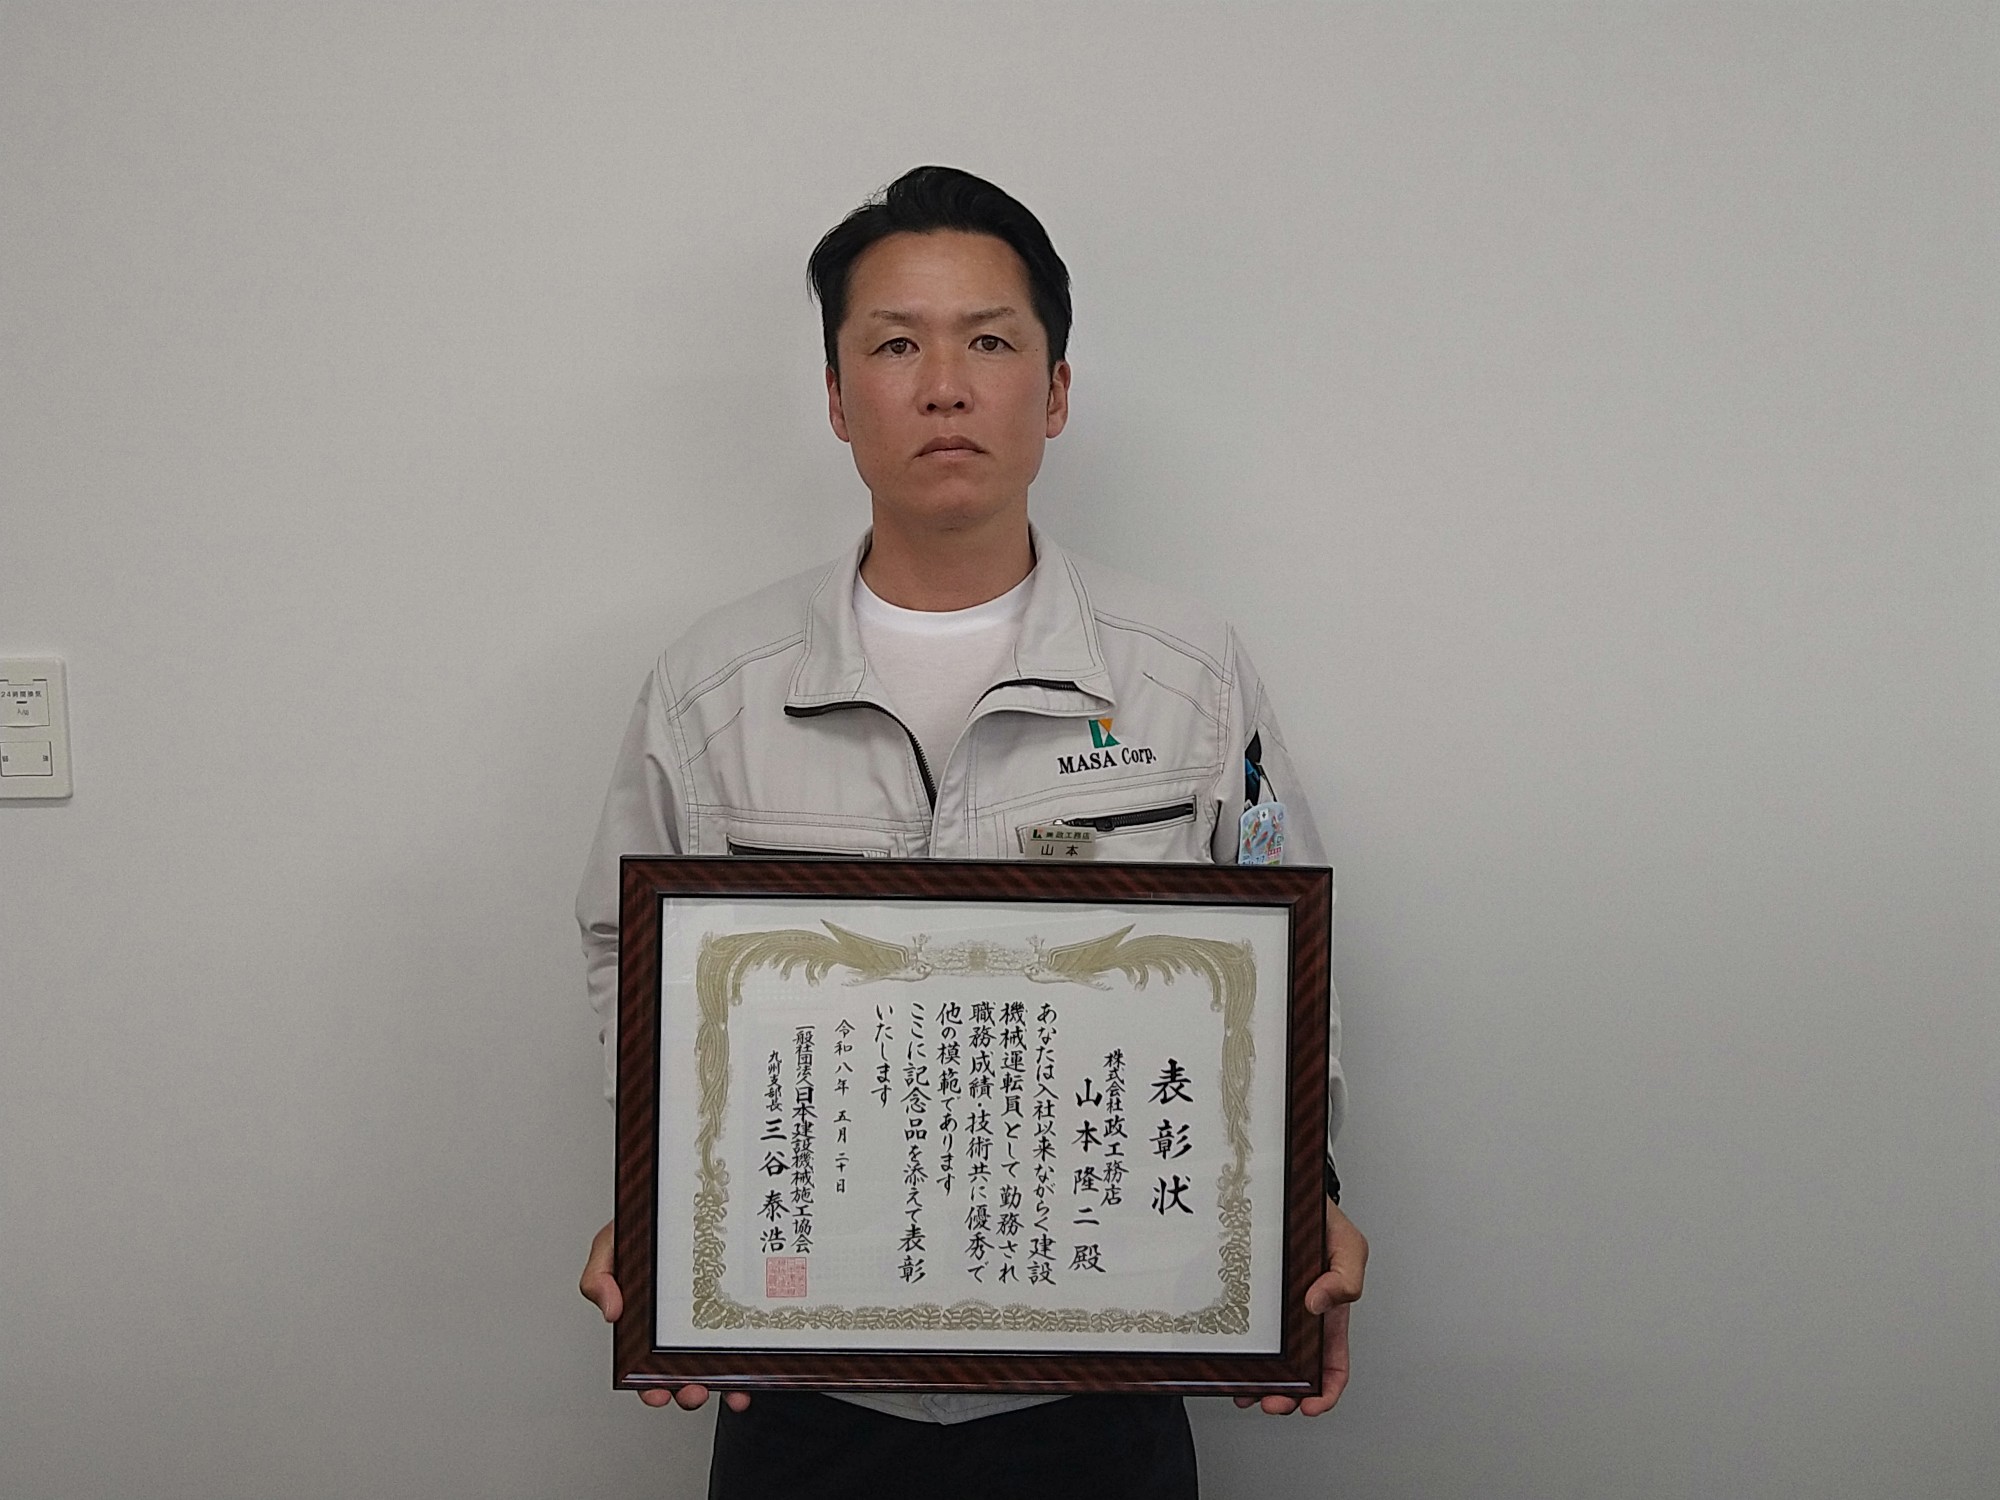 24時間換気
MASA Corp.
㈱政工務店
山本
表彰状
株式会社政工務店
山本隆二殿
あなたは入社以来ながらく建設
機械運転員として勤務され
職務成績・技術共に優秀で
他の模範であります
ここに記念品を添えて表彰
いたします
令和八年五月二十日
一般社団法人日本建設機械施工協会
九州支部長三谷泰浩